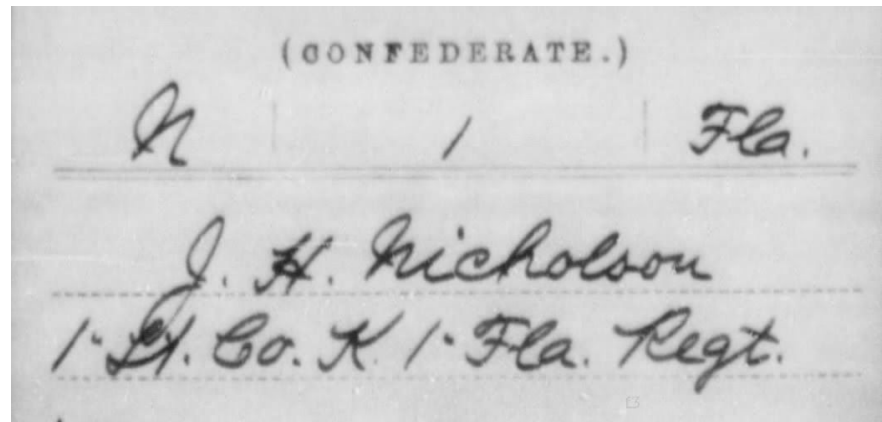 (CONFEDERATE.)
N | 1 | Fla.
J. H. Nicholson
1- Lt. Co. K. 1- Fla. Regt.